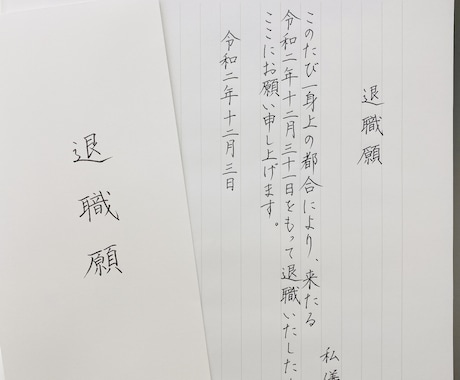 退職願
退職願
私儀
このたび一身上の都合により、来たる
令和二年十二月三十一日をもって退職いたした
ここにお願い申し上げます。
令和二年十二月三日